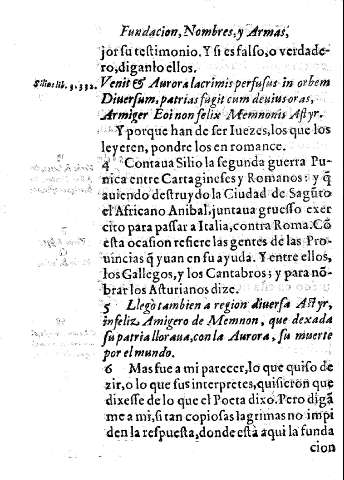 Fundacion, Nombres, y Armas,
jor su testimonio. Y si es falso, o verdade-
ro, diganlo ellos.
Silio. lib. 3. 332.
Venit & Aurora lacrimis perfusus in orbem
Diuersum, patrias fugit cum deuius oras,
Armiger Eoi non felix Memnonis Astyr.
Y porque han de ser Iuezes, los que los
leyeren, pondre los en romance.
4 Contaua Silio la segunda guerra Pu-
nica entre Cartagineses y Romanos: y q̃
auiendo destruydo la Ciudad de Sagũto
el Africano Anibal, juntaua gruesso exer
cito para passar a Italia, contra Roma. Cõ
esta ocasion refiere las gentes de las Pro-
uincias q̃ yuan en su ayuda. Y entre ellos,
los Gallegos, y los Cantabros; y para nõ-
brar los Asturianos dize.
5 Llegò tambien a region diuersa Astyr,
infeliz Amigero de Memnon, que dexada
su patria lloraua, con la Aurora, su muerte
por el mundo.
6 Mas fue a mi parecer, lo que quiso de
zir, o lo que sus interpretes, quisieron que
dixesse de lo que el Poeta dixo. Pero digã
me a mi, si tan copiosas lagrimas no impi
den la respuesta, donde està aqui la funda
cion